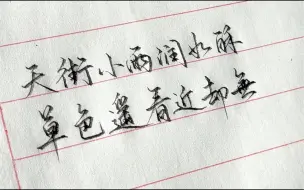 天街小雨润如酥
草色遥看近却無